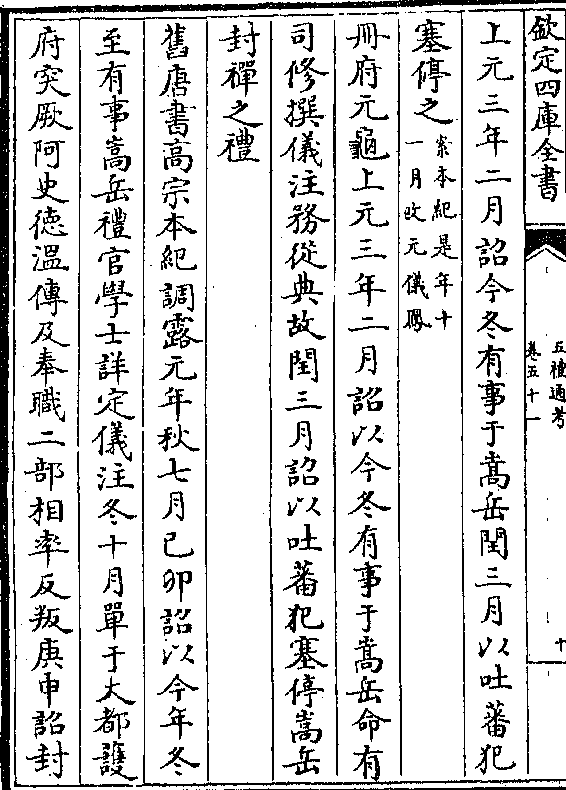 欽定四庫全書
五禮通考
卷五十一
十
上元三年二月詔今冬有事于嵩岳閏三月以吐蕃犯
塞停之
案本紀是年十
一月改元儀鳳
冊府元龜上元三年二月詔以今冬有事于嵩岳命有
司修撰儀注務從典故閏三月詔以吐蕃犯塞停嵩岳
封禪之禮
舊唐書高宗本紀調露元年秋七月己卯詔以今年冬
至有事嵩岳禮官學士詳定儀注冬十月單于大都護
府突厥阿史德溫傅及奉職二部相率反叛庚申詔封